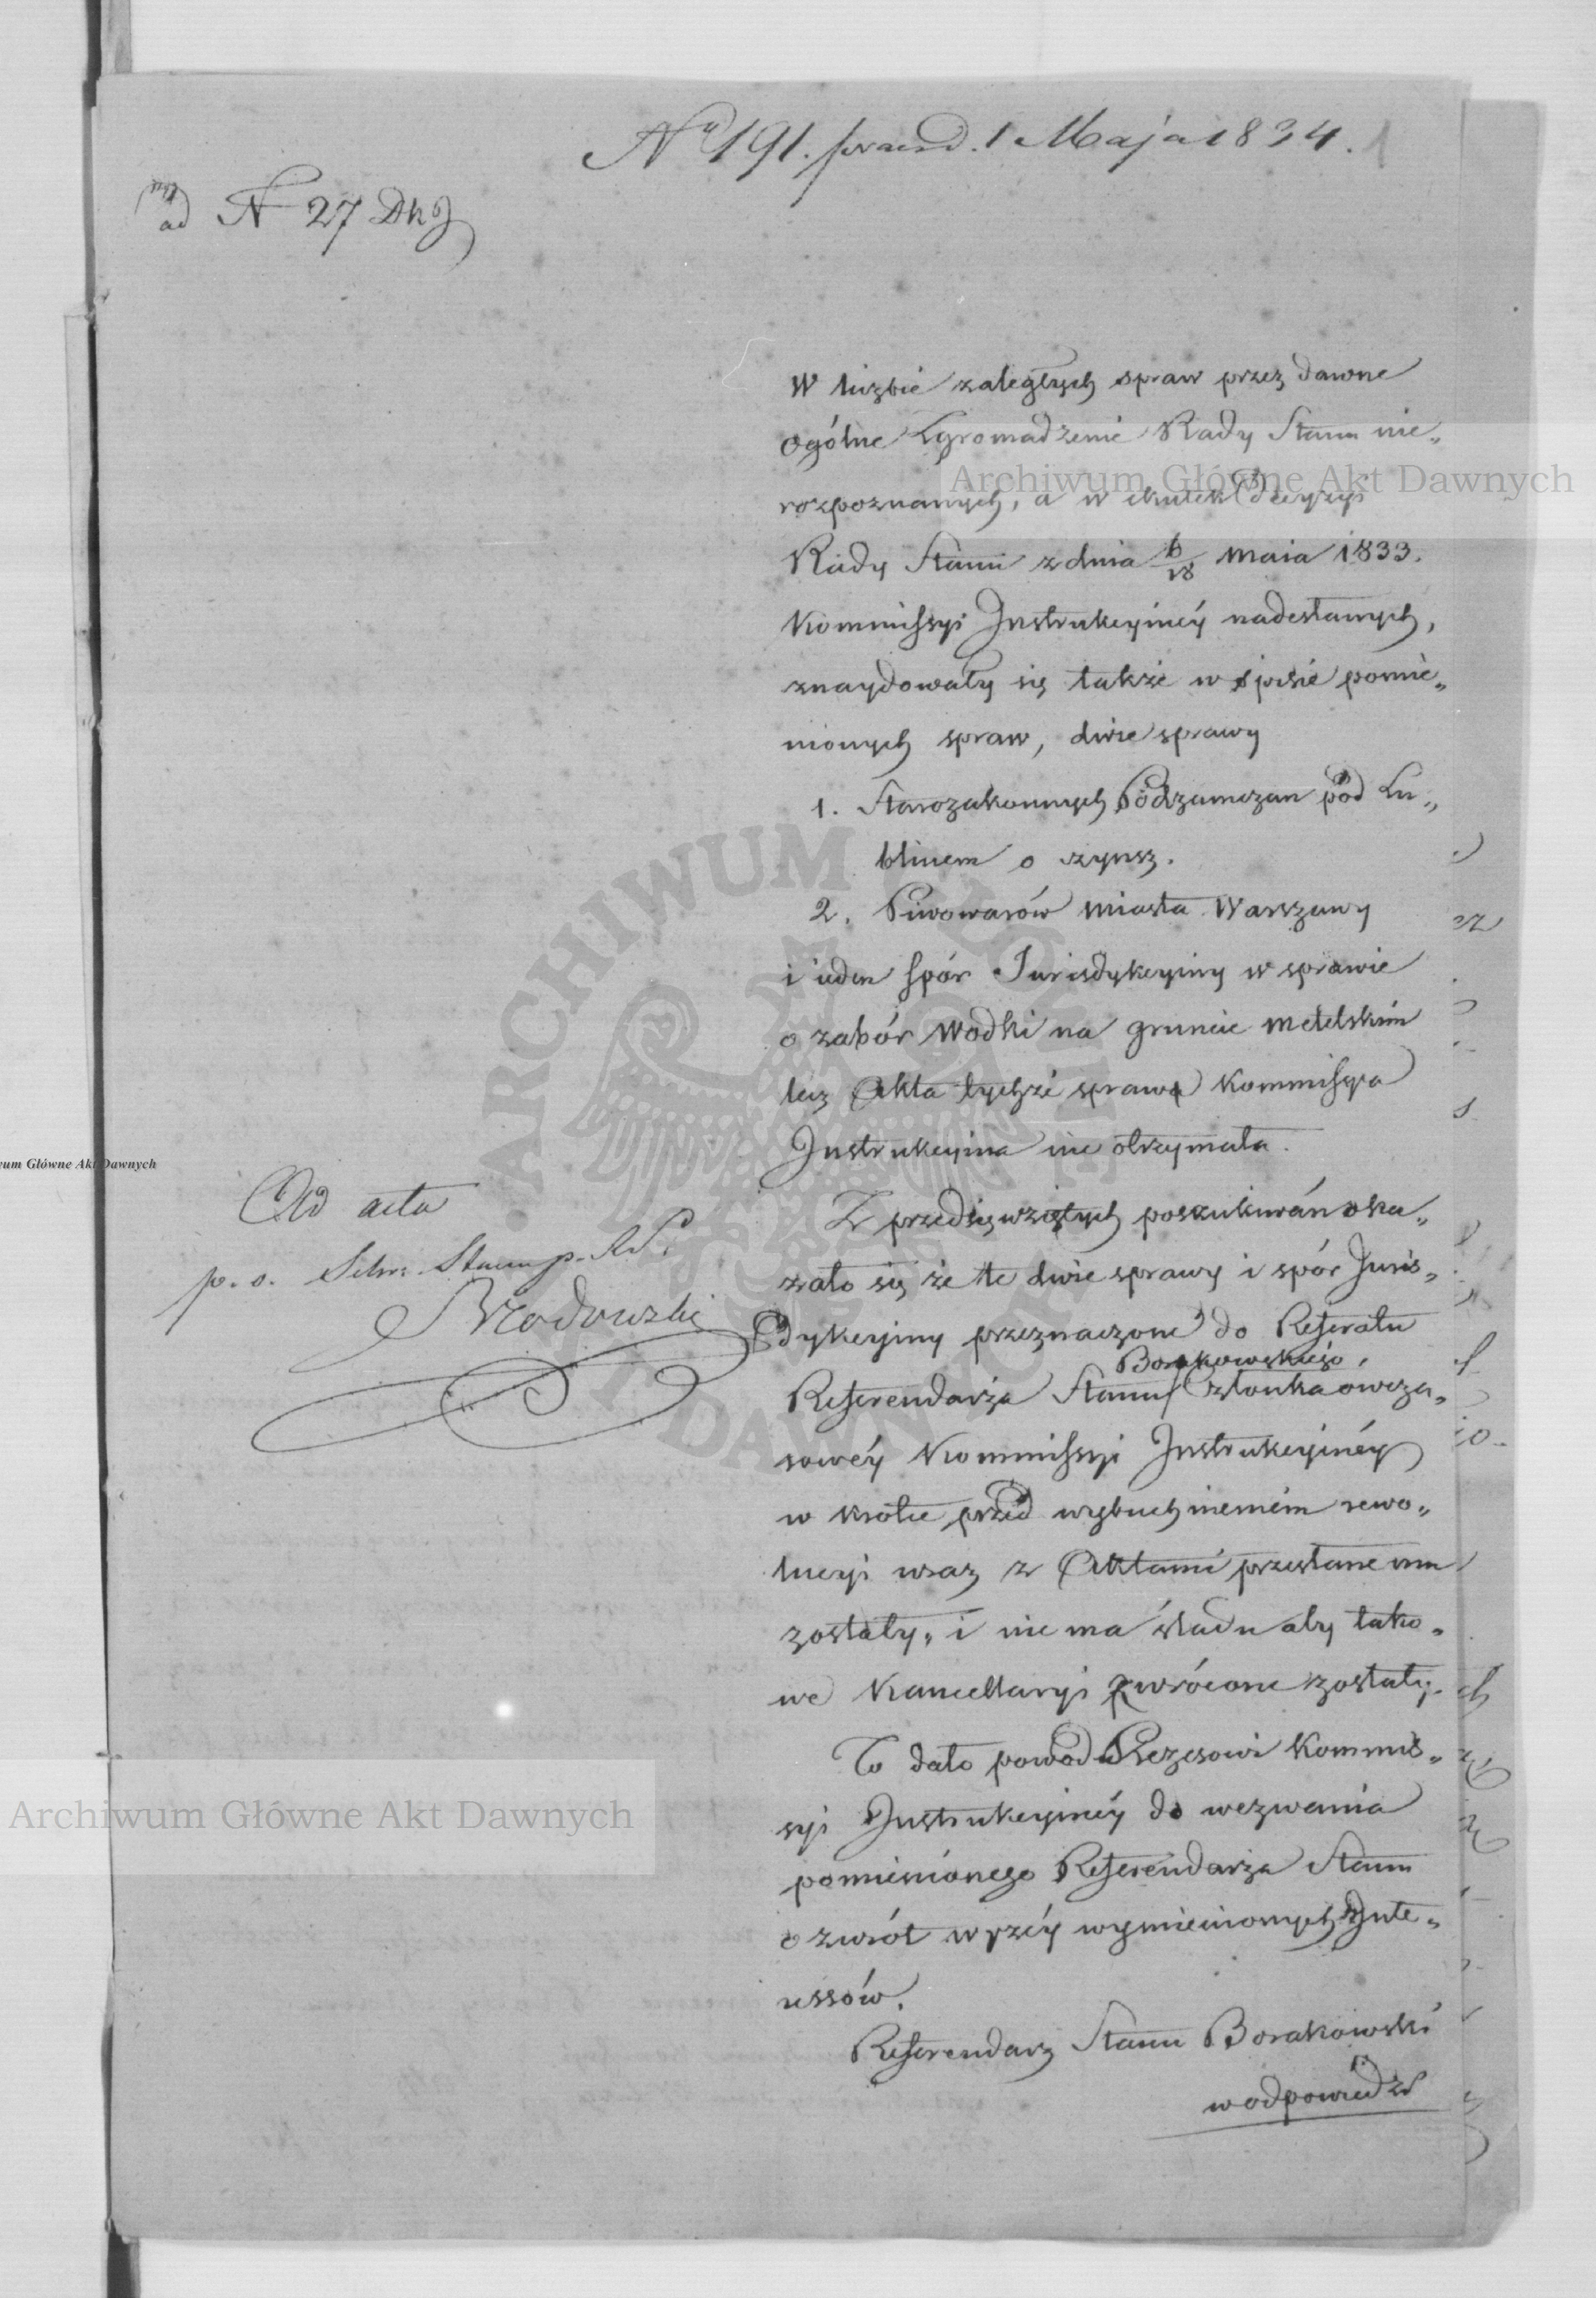 Nº 191. praesd. 1 Maja 1834.
ad N 27 DKJ
W liczbie zaległych spraw przez dawne
ogólne Zgromadzenie Rady Stanu nie„
Archiwum Główne Akt Dawnych
rozpoznanych, a w skutek Decyzyi
Rady Stanu z dnia 6/18 Maia 1833.
Kommissyi Instrukcyinéy nadesłanych,
znaydowały się także w spisie pomie„
nionych spraw, dwie sprawy
1. Starozakonnych Podzamczan pod Lu„
blinem o czynsz.
2. Piwowarów Miasta Warszawy
i ieden spór Jurisdykcyiny w sprawie
o zabór Wodki na gruncie Metelskim
lecz Akta tychże spraw Kommissya
Instrukcyina nie otrzymała.
Z przedsięwziętych poszukiwań oka„
zało się że te dwie sprawy i spór Juris„
dykcyiny przeznaczone do Referatu
Borakowskiego,
Referendarza Stanu Członka owcza„
sowéy Kommissyi Instrukcyinéy
w krótce przed wybuchnieniem rewo„
lucyi wraz z Aktami przesłane mu
zostały, i nie ma śladu aby tako„
we Kancellaryi zwrócone zostały.
To dało powod Prezesowi Kommis„
syi Instrukcyinéy do wezwania
pomienionego Referendarza Stanu
o zwrót wyzéy wymienionych Inte„
ressów.
Referendarz Stanu Borakowski
w odpowiedzi
Ad acta
p. o. Sekr. Stanu p. R. S.
Brodowski
Archiwum Główne Akt Dawnych
um Główne Akt Dawnych
ARCHIWUM GŁÓWNE AKT DAWNYCH